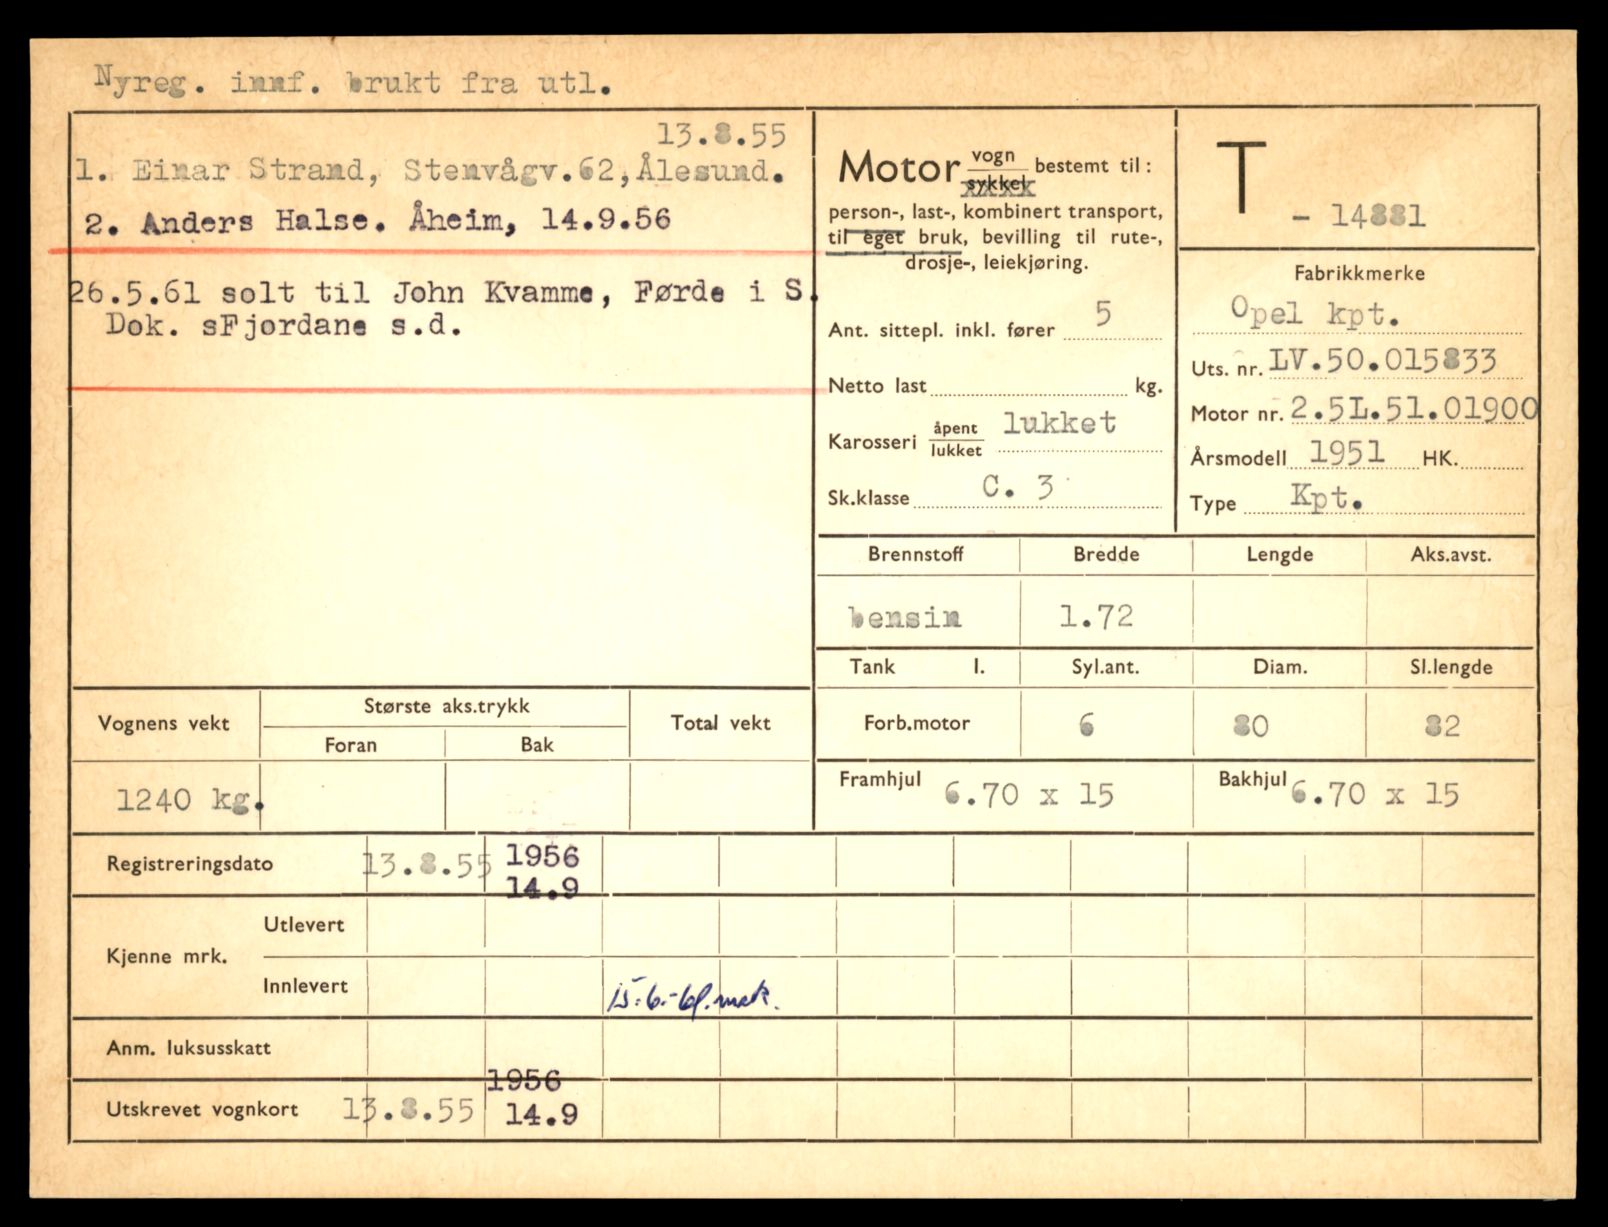 Nyreg. innf. brukt fra utl.
13.8.55
1. Einar Strand, Stenvågv.62,Ålesund.
2. Anders Halse. Åheim, 14.9.56
26.5.61 solt til John Kvamme, Førde i S.
Dok. sFjordane s.d.
Motor vogn sykkel bestemt til:
person-, last-, kombinert transport,
til eget bruk, bevilling til rute-,
drosje-, leiekjøring.
Ant. sittepl. inkl. fører 5
Netto last kg.
Karosseri åpent lukket lukket
Sk.klasse C. 3
T - 14881
Fabrikkmerke
Opel kpt.
Uts. nr. LV.50.015833
Motor nr. 2.5L.51.01900
Årsmodell 1951 HK.
Type Kpt.
Brennstoff Bredde Lengde Aks.avst.
bensin 1.72
Tank l. Syl.ant. Diam. Sl.lengde
Forb.motor 6 80 82
Framhjul 6.70 x 15 Bakhjul 6.70 x 15
Vognens vekt Største aks.trykk Total vekt
Foran Bak
1240 kg.
Registreringsdato 13.8.55 1956
14.9
Kjenne mrk. Utlevert
Innlevert 15.6.-61. mrk.
Anm. luksusskatt
1956
Utskrevet vognkort 13.8.55 14.9